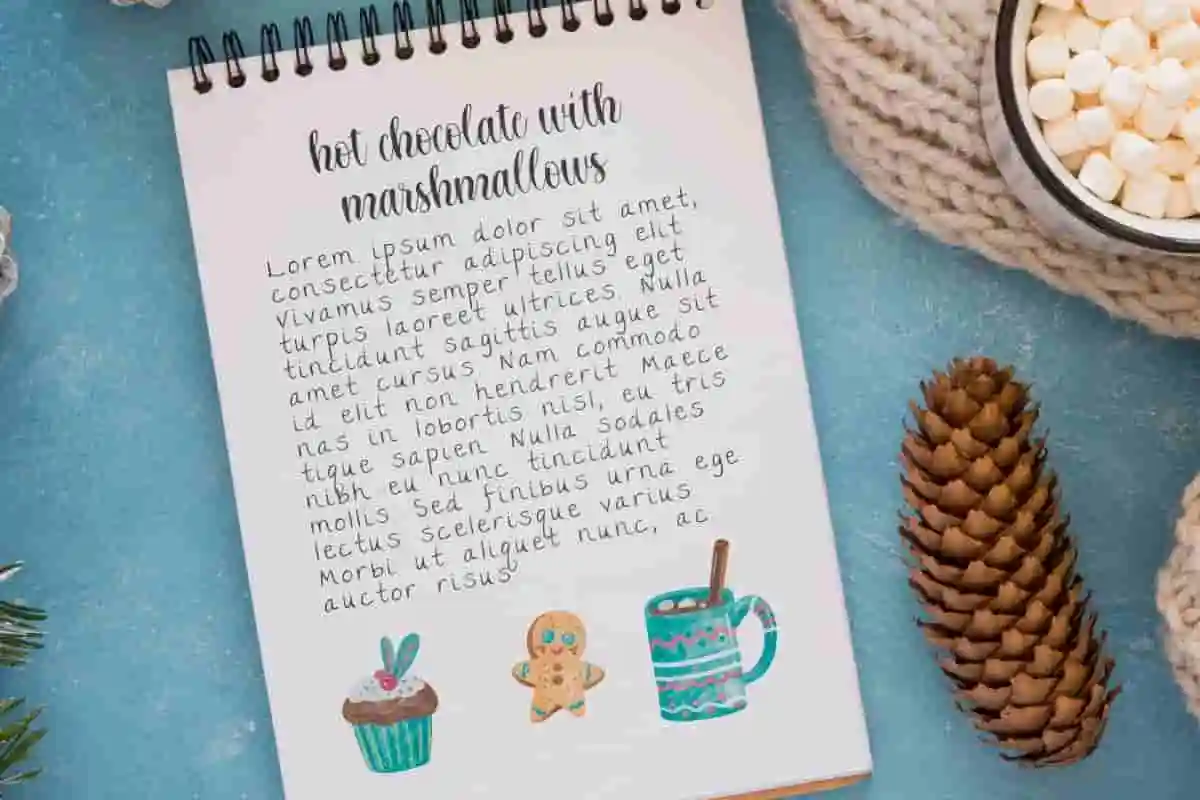 hot chocolate with
marshmallows
Lorem ipsum dolor sit amet,
consectetur adipiscing elit
vivamus semper tellus eget
turpis laoreet ultrices Nulla
tincidunt sagittis augue sit
amet cursus Nam commodo
id elit non hendrerit Maece
nas in lobortis nisl, eu tris
tique sapien Nulla sodales
nibh eu nunc tincidunt
mollis Sed finibus urna ege
lectus scelerisque varius
Morbi ut aliquet nunc, ac
auctor risus